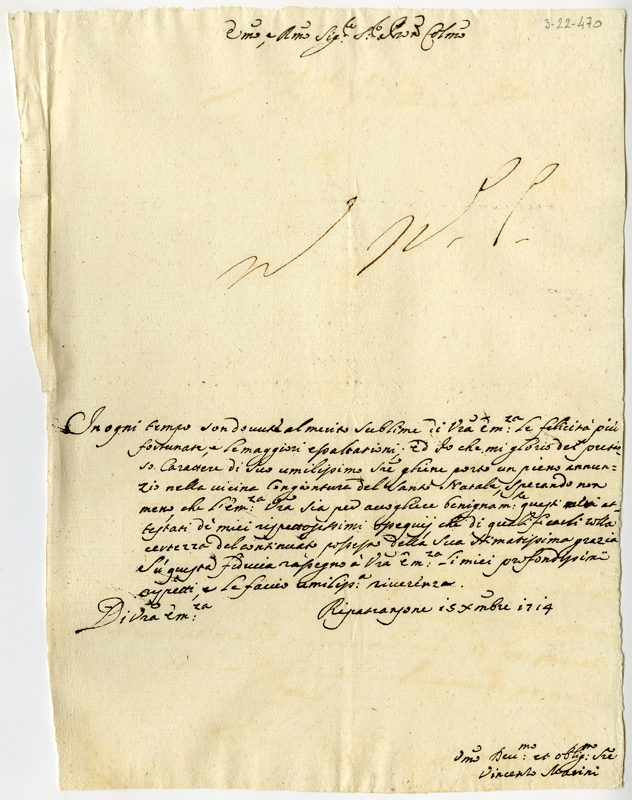 3-22-470
Emo, e Rmo Sig.re S.r Pron Colmo
In ogni tempo son dovute al merito sublime di Vra Em.za le felicità più
fortunate, e le maggiori essaltationi; Ed Io che mi glorio del pretio-
so Carattere di suo umilissimo Sre gliene porto un pieno annun-
zio nella vicina Congiontura del Santo Natale, sperando non
meno che l'Em.za Vra sia per accogliere benignam.te questi at-
testati de miei rispettosissimi ossequij che di colla
certezza del continuato possesso della Sua stimatissima grazia
e sù questa fiducia rassegno à Vra Em.za li miei profondissimi
rispetti e le faccio umiliss.a riverenza.
Di Vra Em.za Ripatransone 15 Xmbre 1714
Vmo Devmo et oblig.mo Sre
Vincenzo Marini